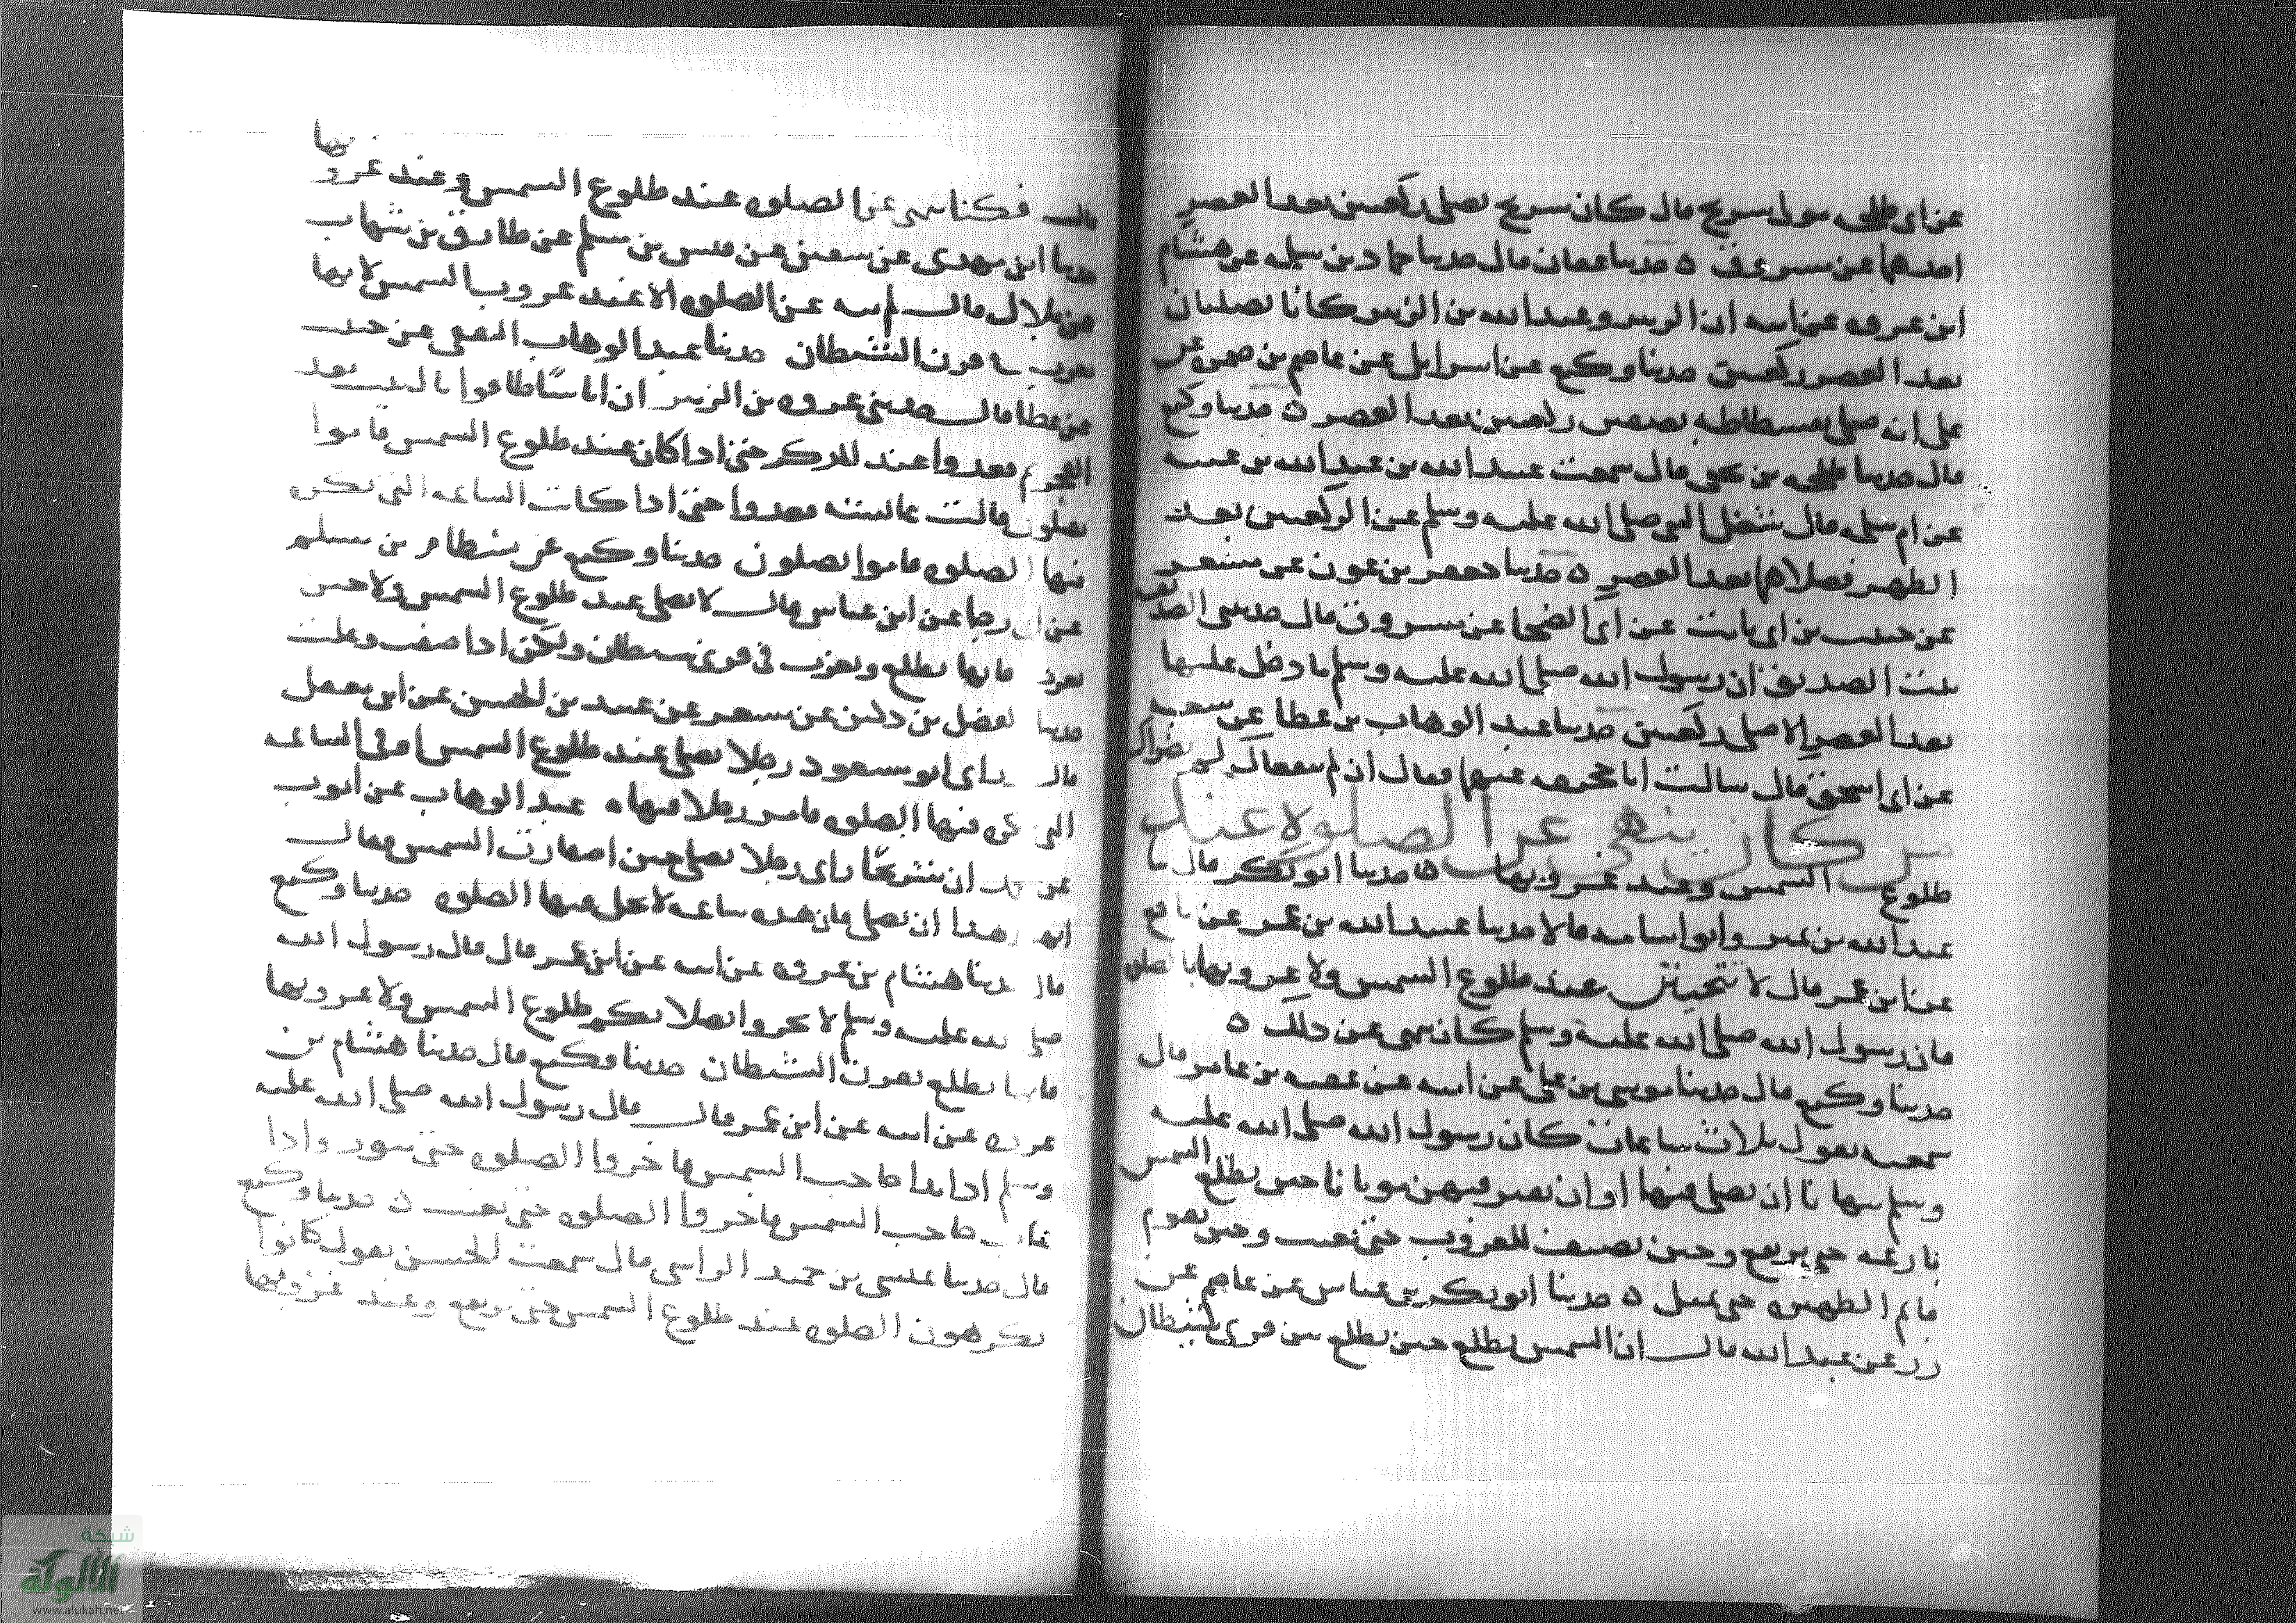 عن ابى طلق سول سريج قال كان سريج يصلى ركعتين بعد العصر
عن مسروق ه حدثنا عفان قال حدثنا حماد بن سلمه عن هشام
ابن عروه عن ابيه ان الزبير وعبد الله بن الزبير كانا يصليان
بعد العصر ركعتين حدثنا وكيع عن اسرائيل عن عاصم بن ضمره عن
على انه صلى بفسطاطه بصفين ركعتين بعد العصر ه حدثنا وكيع
قال حدثنا طلحه بن يحيى قال سمعت عبيد الله بن عبد الله بن عتبه
عن ام سلمه قال شغل النبى صلى الله عليه وسلم عن الركعتين بعد
الظهر فصلاهما بعد العصر ه حدثنا جعفر بن عون عن مسعر
عن حبيب بن ابى ثابت عن ابى الضحا عن مسروق قال حدثتنى الصديقه
بنت الصديق ان رسول الله صلى الله عليه وسلم ما دخل عليها
بعد العصر الا صلى ركعتين حدثنا عبد الوهاب بن عطا عن سعيد
عن ابى اسحق قال سالت ابا جحيفه عنهما فقال ان لم ينفعاك لم يضراك
من كان ينهى عن الصلاة عند
طلوع الشمس وعند غروبها ه حدثنا ابو بكر قال نا
عبد الله بن نمير وابو اسامه قالا حدثنا عبيد الله بن عمر عن نافع
عن ابن عمر قال لا عند طلوع الشمس ولا غروبها بالصلوه
فان رسول الله صلى الله عليه وسلم كان ينهى عن ذلك ه
حدثنا وكيع قال حدثنا موسى بن على عن ابيه عن عقبه بن عامر قال
سمعته يقول ثلاث ساعات كان رسول الله صلى الله عليه
وسلم ينهانا ان نصلى فيها او ان نقبر فيهن موتانا حين تطلع الشمس
بازغه حتى ترتفع وحين تضيف للغروب حتى تغيب وحين يقوم
قايم الظهيره حتى تميل ه حدثنا ابو بكر بن عياش عن عاصم عن
زر عن عبد الله قال ان الشمس تطلع حين تطلع بين قرنى شيطان
قال فكنا ننهى عن الصلوه عند طلوع الشمس وعند غروبها
حدثنا ابن مهدى عن سفين عن قيس بن مسلم عن طارق بن شهاب
عن بلال قال لم ينه عن الصلوه الا عند غروب الشمس لانها
تغرب فى قرن الشيطان حدثنا عبد الوهاب الثقفى عن حبيب
عن عطا قال حدثنى عروه بن الزبير ان اناسا طافوا بالبيت بعد
الفجر ثم قعدوا عند المذكر حتى اذا كان عند طلوع الشمس قاموا
يصلون قالت عائشه قعدوا حتى اذا كانت الساعه التى تكره
فيها الصلوه قاموا يصلون حدثنا وكيع عن بسطام بن مسلم
عن ابى رجا عن ابن عباس قال لا تصلى عند طلوع الشمس ولا حين
تغرب فانها تطلع وتغرب فى قرنى شيطان ولكن اذا صفت وعلت
حدثنا الفضل بن دكين عن مسعر عن عبيد بن الحسن عن ابن معقل
قال راى ابو مسعود رجلا يصلى عند طلوع الشمس او فى الساعه
التى تكره فيها الصلوه رجلا فنهاه عبد الوهاب عن ايوب
عن ان شريحا راى رجلا يصلى حين اصفارت الشمس وقال
هذا ان يصلى فان هذه ساعه لا تحل فيها الصلوه حدثنا وكيع
قال حدثنا هشام بن عروه عن ابيه عن ابن عمر قال قال رسول الله
صلى الله عليه وسلم لا تحروا بصلاتكم طلوع الشمس ولا غروبها
فانها تطلع بقرن الشيطان حدثنا وكيع قال حدثنا هشام بن
عروه عن ابيه عن ابن عمر قال قال رسول الله صلى الله عليه
وسلم اذا بدا حاجب الشمس فاخروا الصلوه حتى تبرز واذا
غاب حاجب الشمس فاخروا الصلوه حتى تغيب ه حدثنا وكيع
قال حدثنا عيسى بن حميد الراسبى قال سمعت الحسن يقول كانوا
يكرهون الصلوه عند طلوع الشمس حتى ترتفع وعند غروبها
شبكة
الألوكة
www.alukah.net